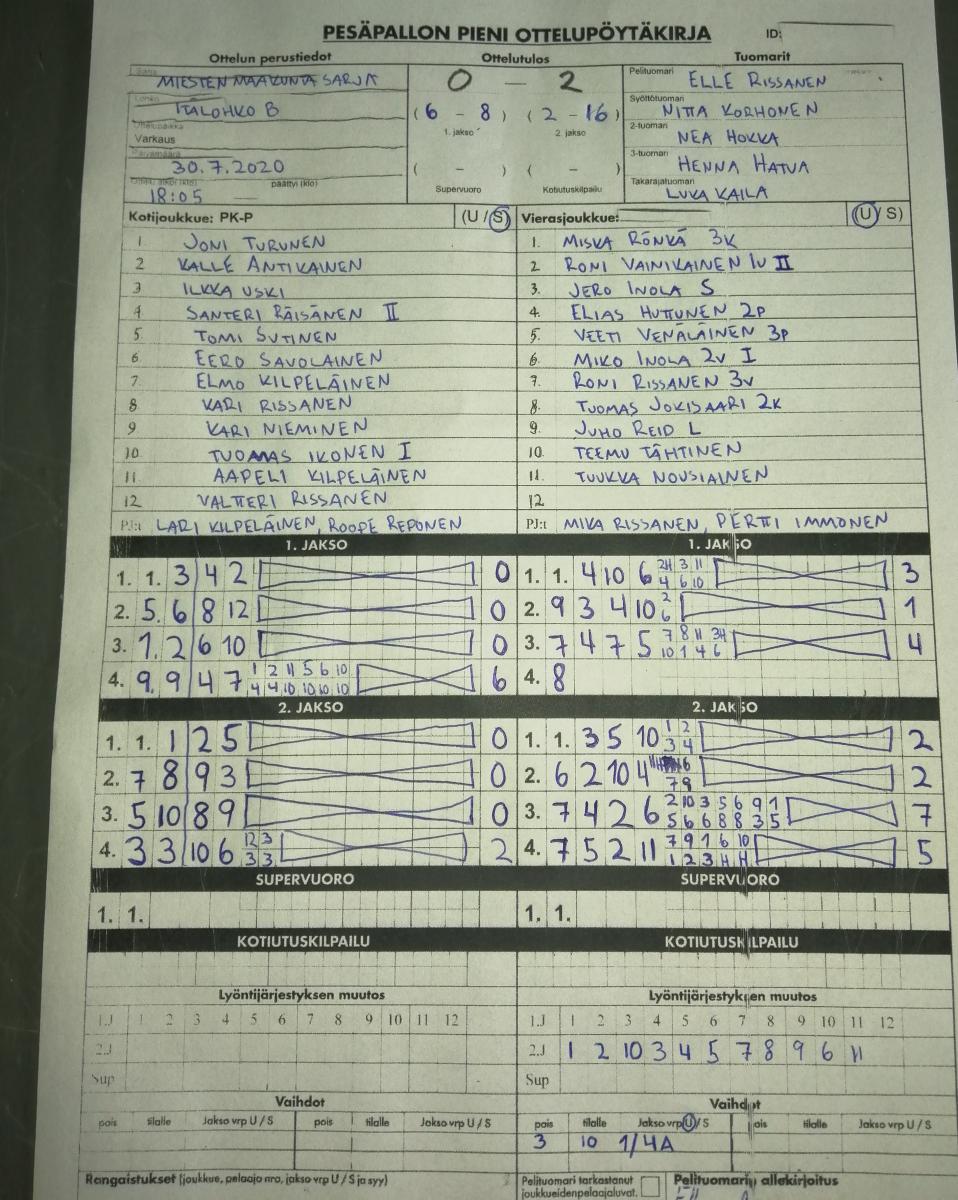 PESÄPALLON PIENI OTTELUPÖYTÄKIRJA ID:
Ottelun perustiedot Ottelutulos Tuomarit
MIESTEN MAAKUNTA SARJA 0 – 2 Pelituomari ELLE RISSANEN
ITÄLOHKO B (6 - 8) (2 - 16) Syöttötuomari NITTA KORHONEN
Varkaus 1. jakso 2. jakso 2-tuomari NEA HOKKA
30.7.2020 ( - ) ( - ) 3-tuomari HENNA HATVA
18:05 päättyi (klo) Supervuoro Kotiutuskilpailu Takarajatuomari LUKA KAILA
Kotijoukkue: PK-P (U / S) Vierasjoukkue: (U / S)
1 JONI TURUNEN 1. MISKA RÖNKÄ 3K
2 KALLE ANTIKAINEN 2 RONI VAINIKAINEN 1V II
3 ILKKA USKI 3. JERO INOLA S
4 SANTERI RÄISÄNEN II 4. ELIAS HUTTUNEN 2P
5 TOMI SUTINEN 5. VEETI VENÄLÄINEN 3P
6. EERO SAVOLAINEN 6. MIKO INOLA 2V I
7. ELMO KILPELÄINEN 7. RONI RISSANEN 3V
8 KARI RISSANEN 8. TUOMAS JOKISAARI 2K
9 KARI NIEMINEN 9. JUHO REID L
10. TUOMAS IKONEN I 10. TEEMU TÄHTINEN
11. AAPELI KILPELÄINEN 11. TUUKKA NOUSIAINEN
12 VALTTERI RISSANEN 12
PJ:t LARI KILPELÄINEN, ROOPE REPONEN PJ:t MIKA RISSANEN, PERTTI IMMONEN
1. JAKSO 1. JAKSO
1. 1. 3 4 2 0 1. 1. 4 10 6 2H 3 11 3
4 6 10
2. 5. 6 8 12 0 2. 9 3 4 10 2 1
6
3. 1. 2 6 10 0 3. 7 4 7 5 7 8 11 3H 4
10 1 4 6
4. 9. 9 4 7 1 2 11 5 6 10 6 4. 8
4 4 10 10 10 10
2. JAKSO 2. JAKSO
1. 1. 1 2 5 0 1. 1. 3 5 10 1 2 2
3 4
2. 7 8 9 3 0 2. 6 2 10 4 6 2
7 9
3. 5 10 8 9 0 3. 7 4 2 6 2 10 3 5 6 9 1 7
5 6 6 8 8 3 5
4. 3 3 10 6 12 3 2 4. 7 5 2 11 7 9 1 6 10 5
3 3 1 2 3 H H
SUPERVUORO SUPERVUORO
1. 1. 1. 1.
KOTIUTUSKILPAILU KOTIUTUSKILPAILU
Lyöntijärjestyksen muutos Lyöntijärjestyksen muutos
1.J 1 2 3 4 5 6 7 8 9 10 11 12 1.J 1 2 3 4 5 6 7 8 9 10 11 12
2.J 2.J 1 2 10 3 4 5 7 8 9 6 11
Sup Sup
Vaihdot Vaihdot
pois tilalle Jakso vrp U / S pois tilalle Jakso vrp U / S pois tilalle Jakso vrp U / S pois tilalle Jakso vrp U / S
3 10 1/4A
Rangaistukset (joukkue, pelaaja nro, jakso vrp U / S ja syy) Pelituomari tarkastanut Pelituomarin allekirjoitus
joukkueidenpelaajaluvat.